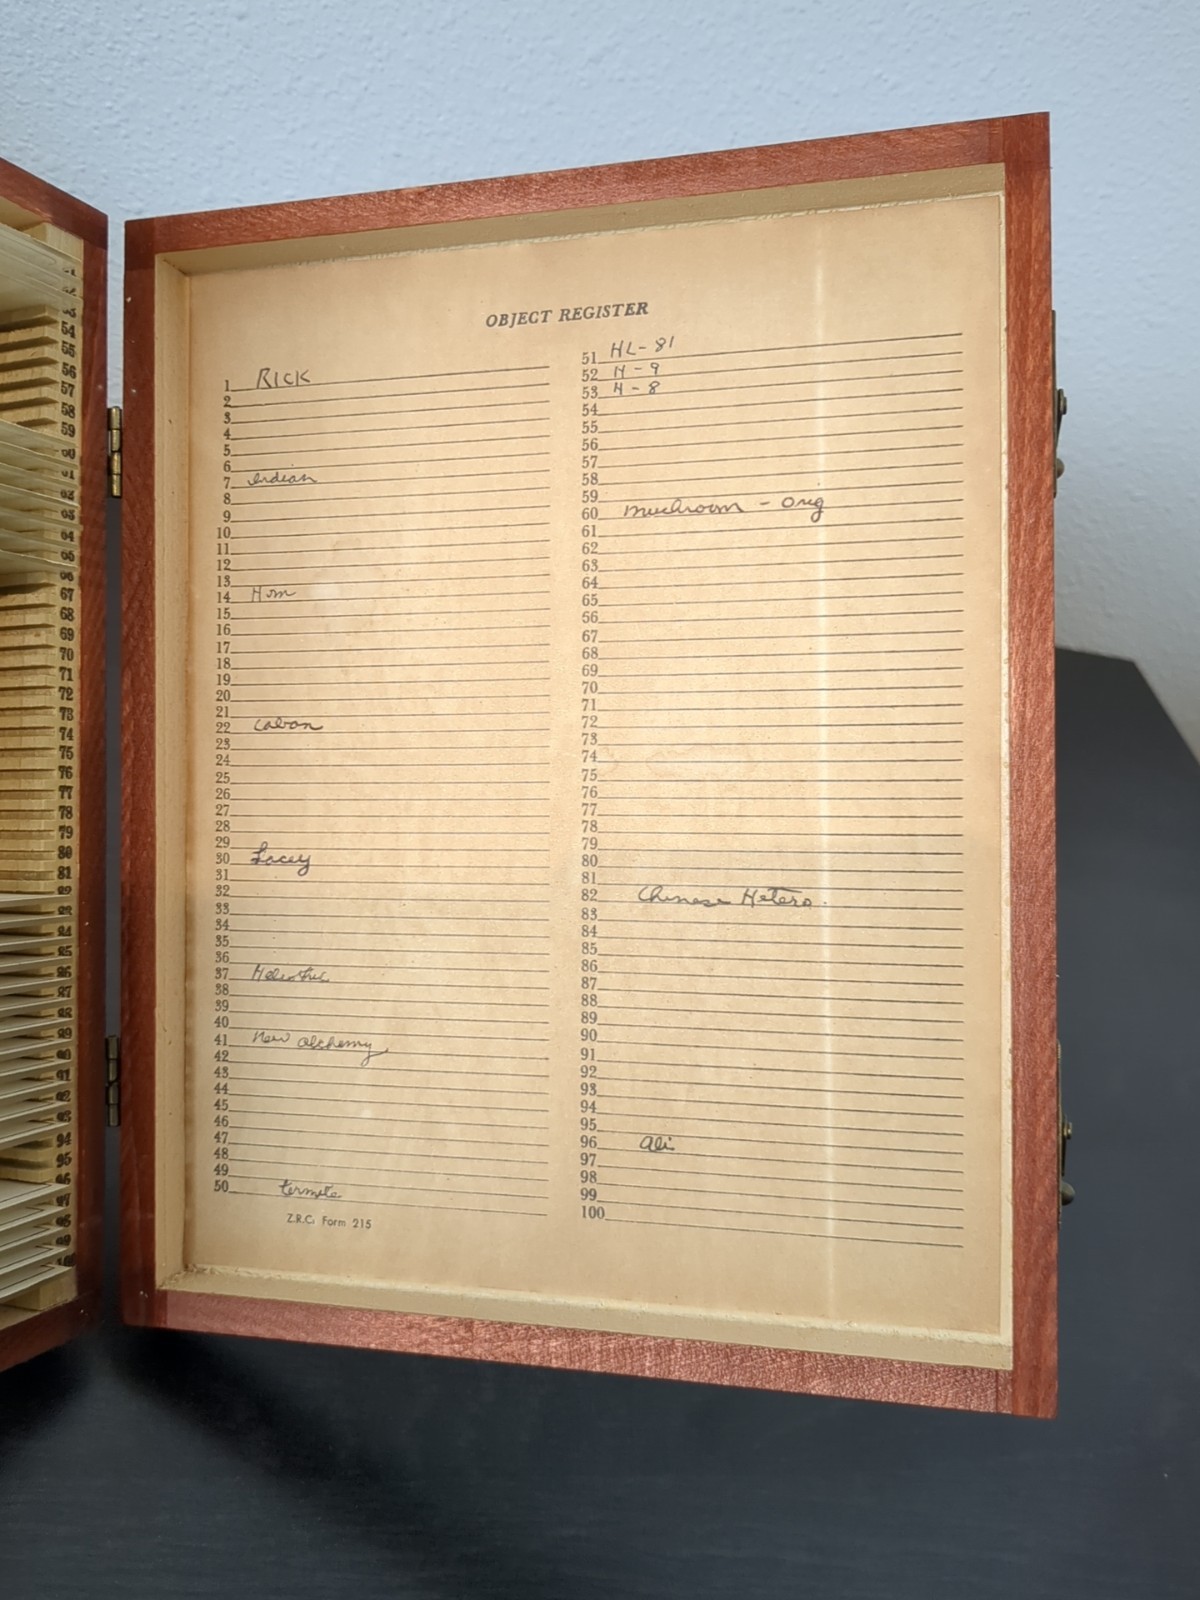 OBJECT REGISTER
1 RICK
2
3
4
5
6
7 Indian
8
9
10
11
12
13
14 Hom
15
16
17
18
19
20
21
22
23
24
25
26
27
28
29
30 Lacey
31
32
33
34
35
36
37
38
39
40
41 New alchemy
42
43
44
45
46
47
48
49
50 termite
Z.R.C. Form 215
51 HL-81
52 H-9
53 H-8
54
55
56
57
58
59
60 mushroom - orig
61
62
63
64
65
56
67
68
69
70
71
72
73
74
75
76
77
78
79
80
81
82 Chinese Hetero.
83
84
85
86
87
88
89
90
91
92
93
94
95
96 Ali
97
98
99
100
54
55
56
57
58
59
67
68
69
70
71
72
73
74
75
76
77
78
79
80
81
94
95